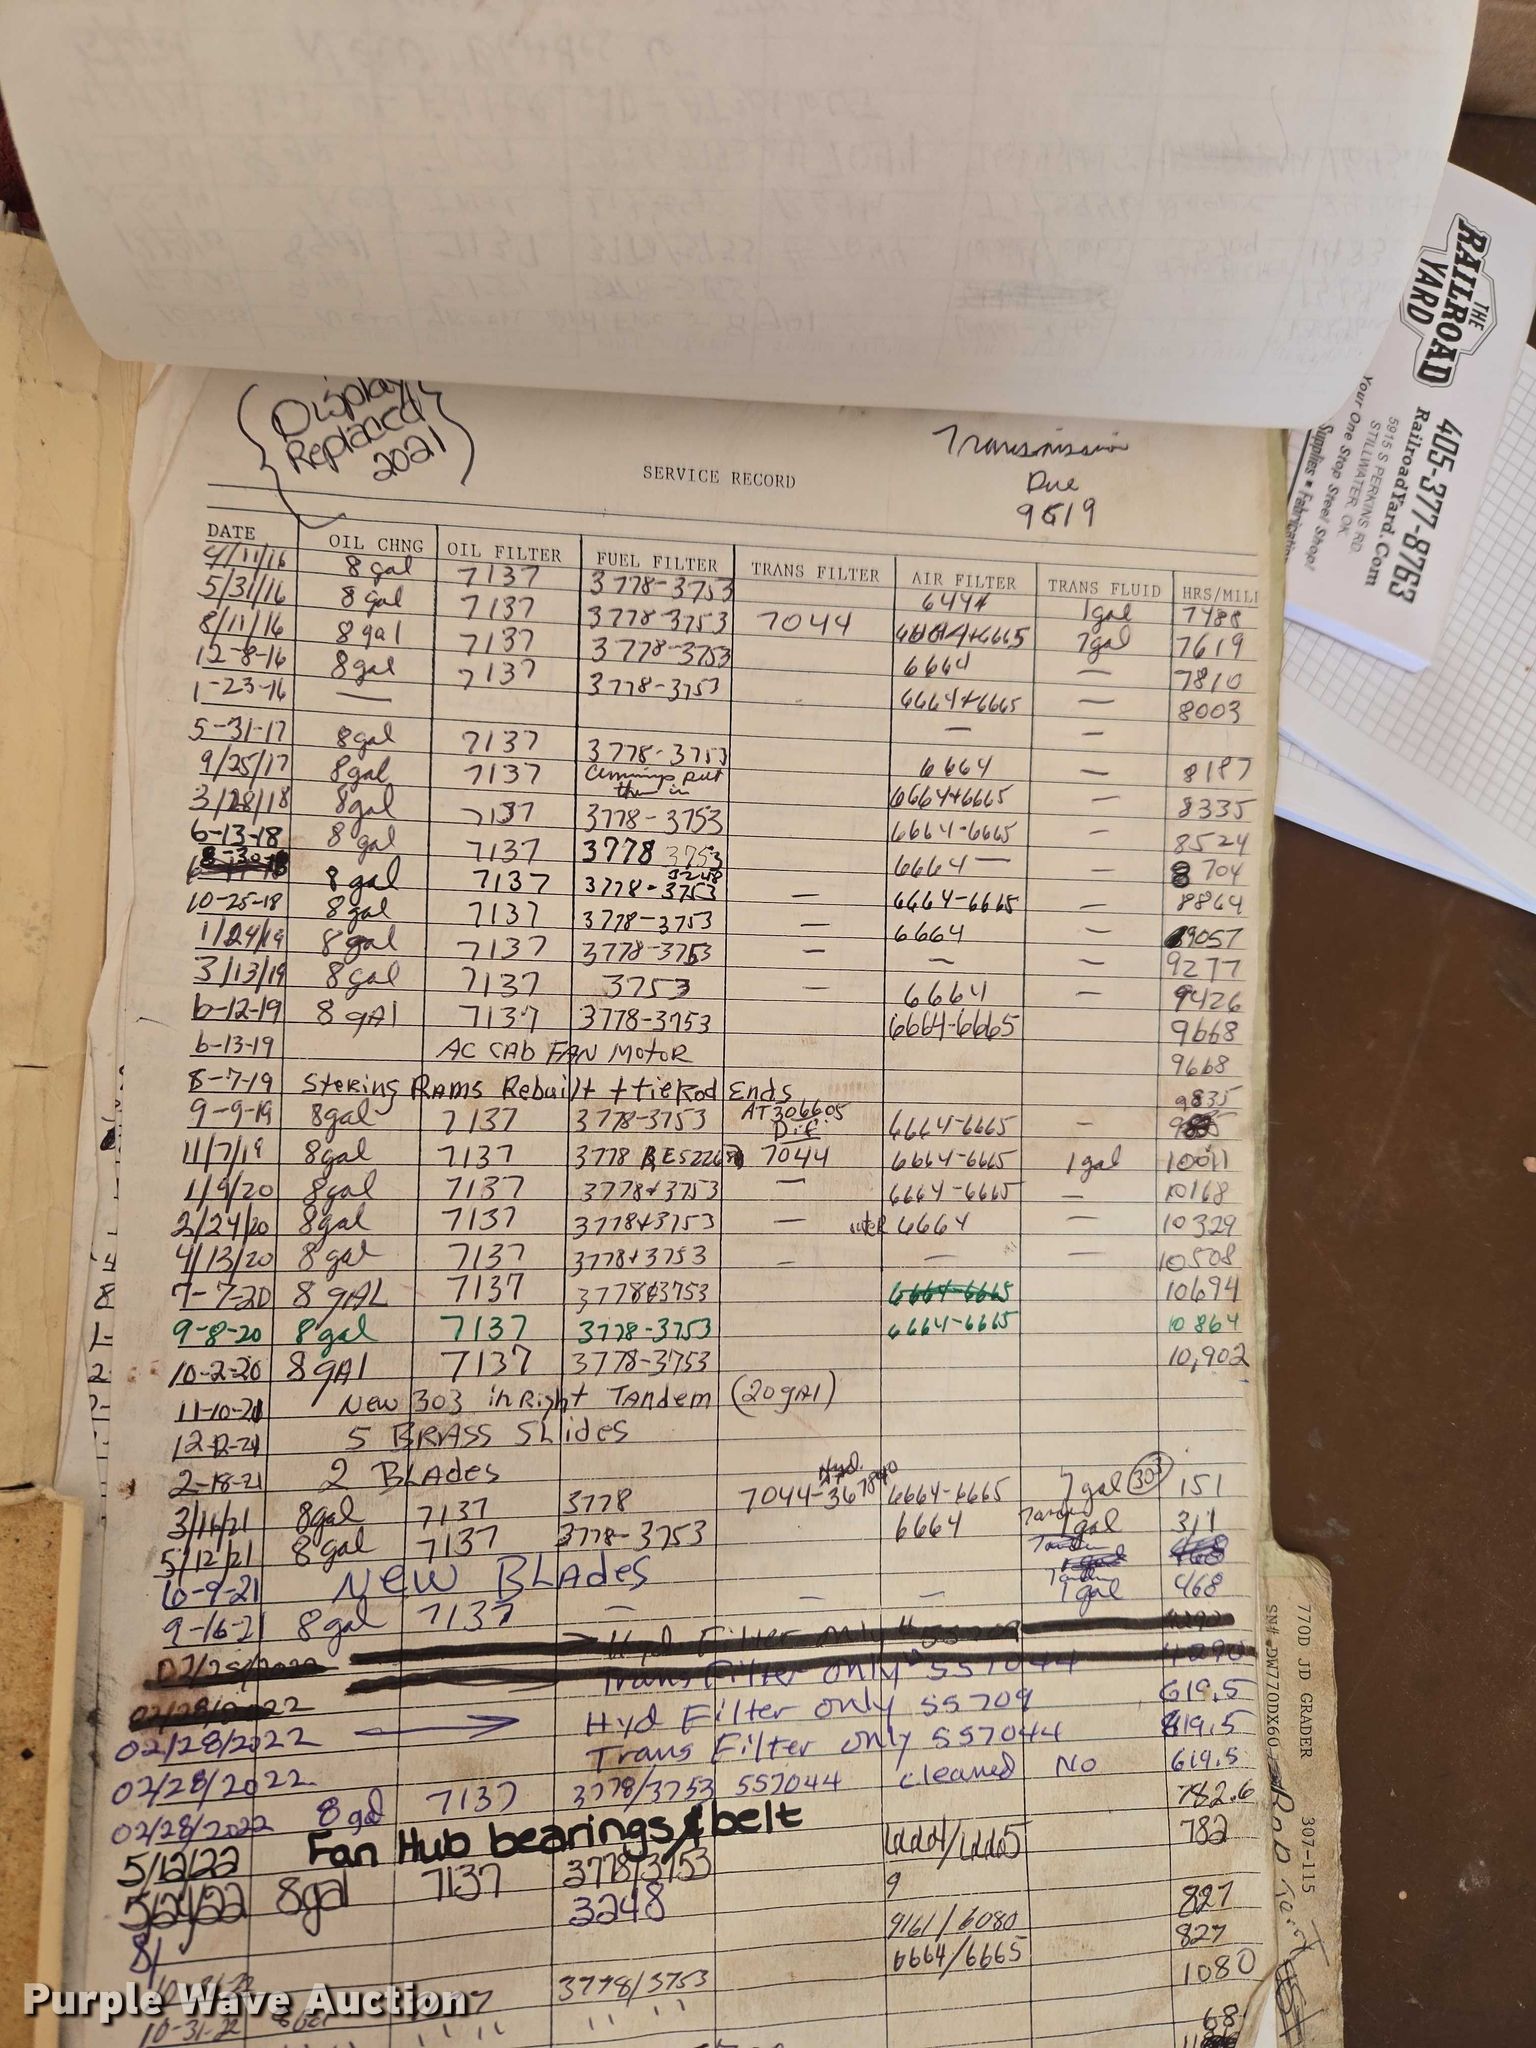 Display
Replaced
2021
Transmission
Due
9519
SERVICE RECORD
DATE OIL CHNG OIL FILTER FUEL FILTER TRANS FILTER AIR FILTER TRANS FLUID HRS/MILE
4/11/16 8 gal 7137 3778-3753 6444 1gal 7488
5/31/16 8 gal 7137 3778-3753 7044 +6665 7gal 7619
8/11/16 8 gal 7137 3778-3753 6664 — 7810
12-8-16 8 gal 7137 3778-3753 6664+6665 — 8003
1-23-16 — — —
5-31-17 8gal 7137 3778-3753 6664 — 8187
9/25/17 8gal 7137 Cummings put them in 6664+6665 — 8335
3/28/18 8gal 7137 3778-3753 6664-6665 — 8524
6-13-18 8 gal 7137 3778 3753 6664 — 8704
8-30-18 8 gal 7137 3778-3753 3248 — 6664-6665 — 8864
10-25-18 8gal 7137 3778-3753 — 6664 — 9057
1/24/19 8gal 7137 3778-3753 — — — 9277
3/13/19 8 gal 7137 3753 — 6664 — 9426
6-12-19 8 gAl 7137 3778-3753 6664-6665 9668
6-13-19 AC CAb FAN MotoR 9668
8-7-19 Stering RAMS Rebuilt + tieRod Ends 9835
9-9-19 8gal 7137 3778-3753 AT306605 Dif 6664-6665 —
11/7/19 8gal 7137 3778 7044 6664-6665 1gal 10011
1/9/20 8gal 7137 3778+3753 — 6664-6665 — 10168
2/24/20 8gal 7137 3778+3753 — 6664 — 10329
4/13/20 8 gal 7137 3778+3753 — — — 10508
7-7-20 8 gAL 7137 3778&3753 6664-6665 10694
9-8-20 8 gal 7137 3778-3753 6664-6665 10864
10-2-20 8 gAl 7137 3778-3753 10,902
11-10-20 New 303 in Right Tandem (20gAl)
12-12-20 5 BRASS Slides
2-18-21 2 BLAdes
3/11/21 8gal 7137 3778 7044- Hyd. 6664-6665 7 gal 303 151
5/12/21 8 gal 7137 3778-3753 6664 Tandem 1gal 311
6-9-21 NEW BLAdes
9-16-21 8 gal 7137 — — — Tandem 1gal 468
Hyd Filter only 55709
02/28/2022 Trans Filter only 557044
02/28/2022 Hyd Filter only 55709 619.5
02/28/2022 Trans Filter only 557044 619.5
02/28/2022 8 gal 7137 3778/3753 557044 cleaned No 619.5
5/12/22 Fan Hub bearings & belt 782.6
5/24/22 8gal 7137 3778/3753 6664/6665 782
8/ 3248 9
9161/6080 827
6664/6665 827
22 3778/3753 1080
10-31-22 " " " " " 68
770D JD GRADER 307-115
THE
RAILROAD
YARD
405-377-8763
RailroadYard.Com
5915 S PERKINS RD
STILLWATER, OK
Your One Stop Steel Shop!
Supplies
Purple Wave Auction